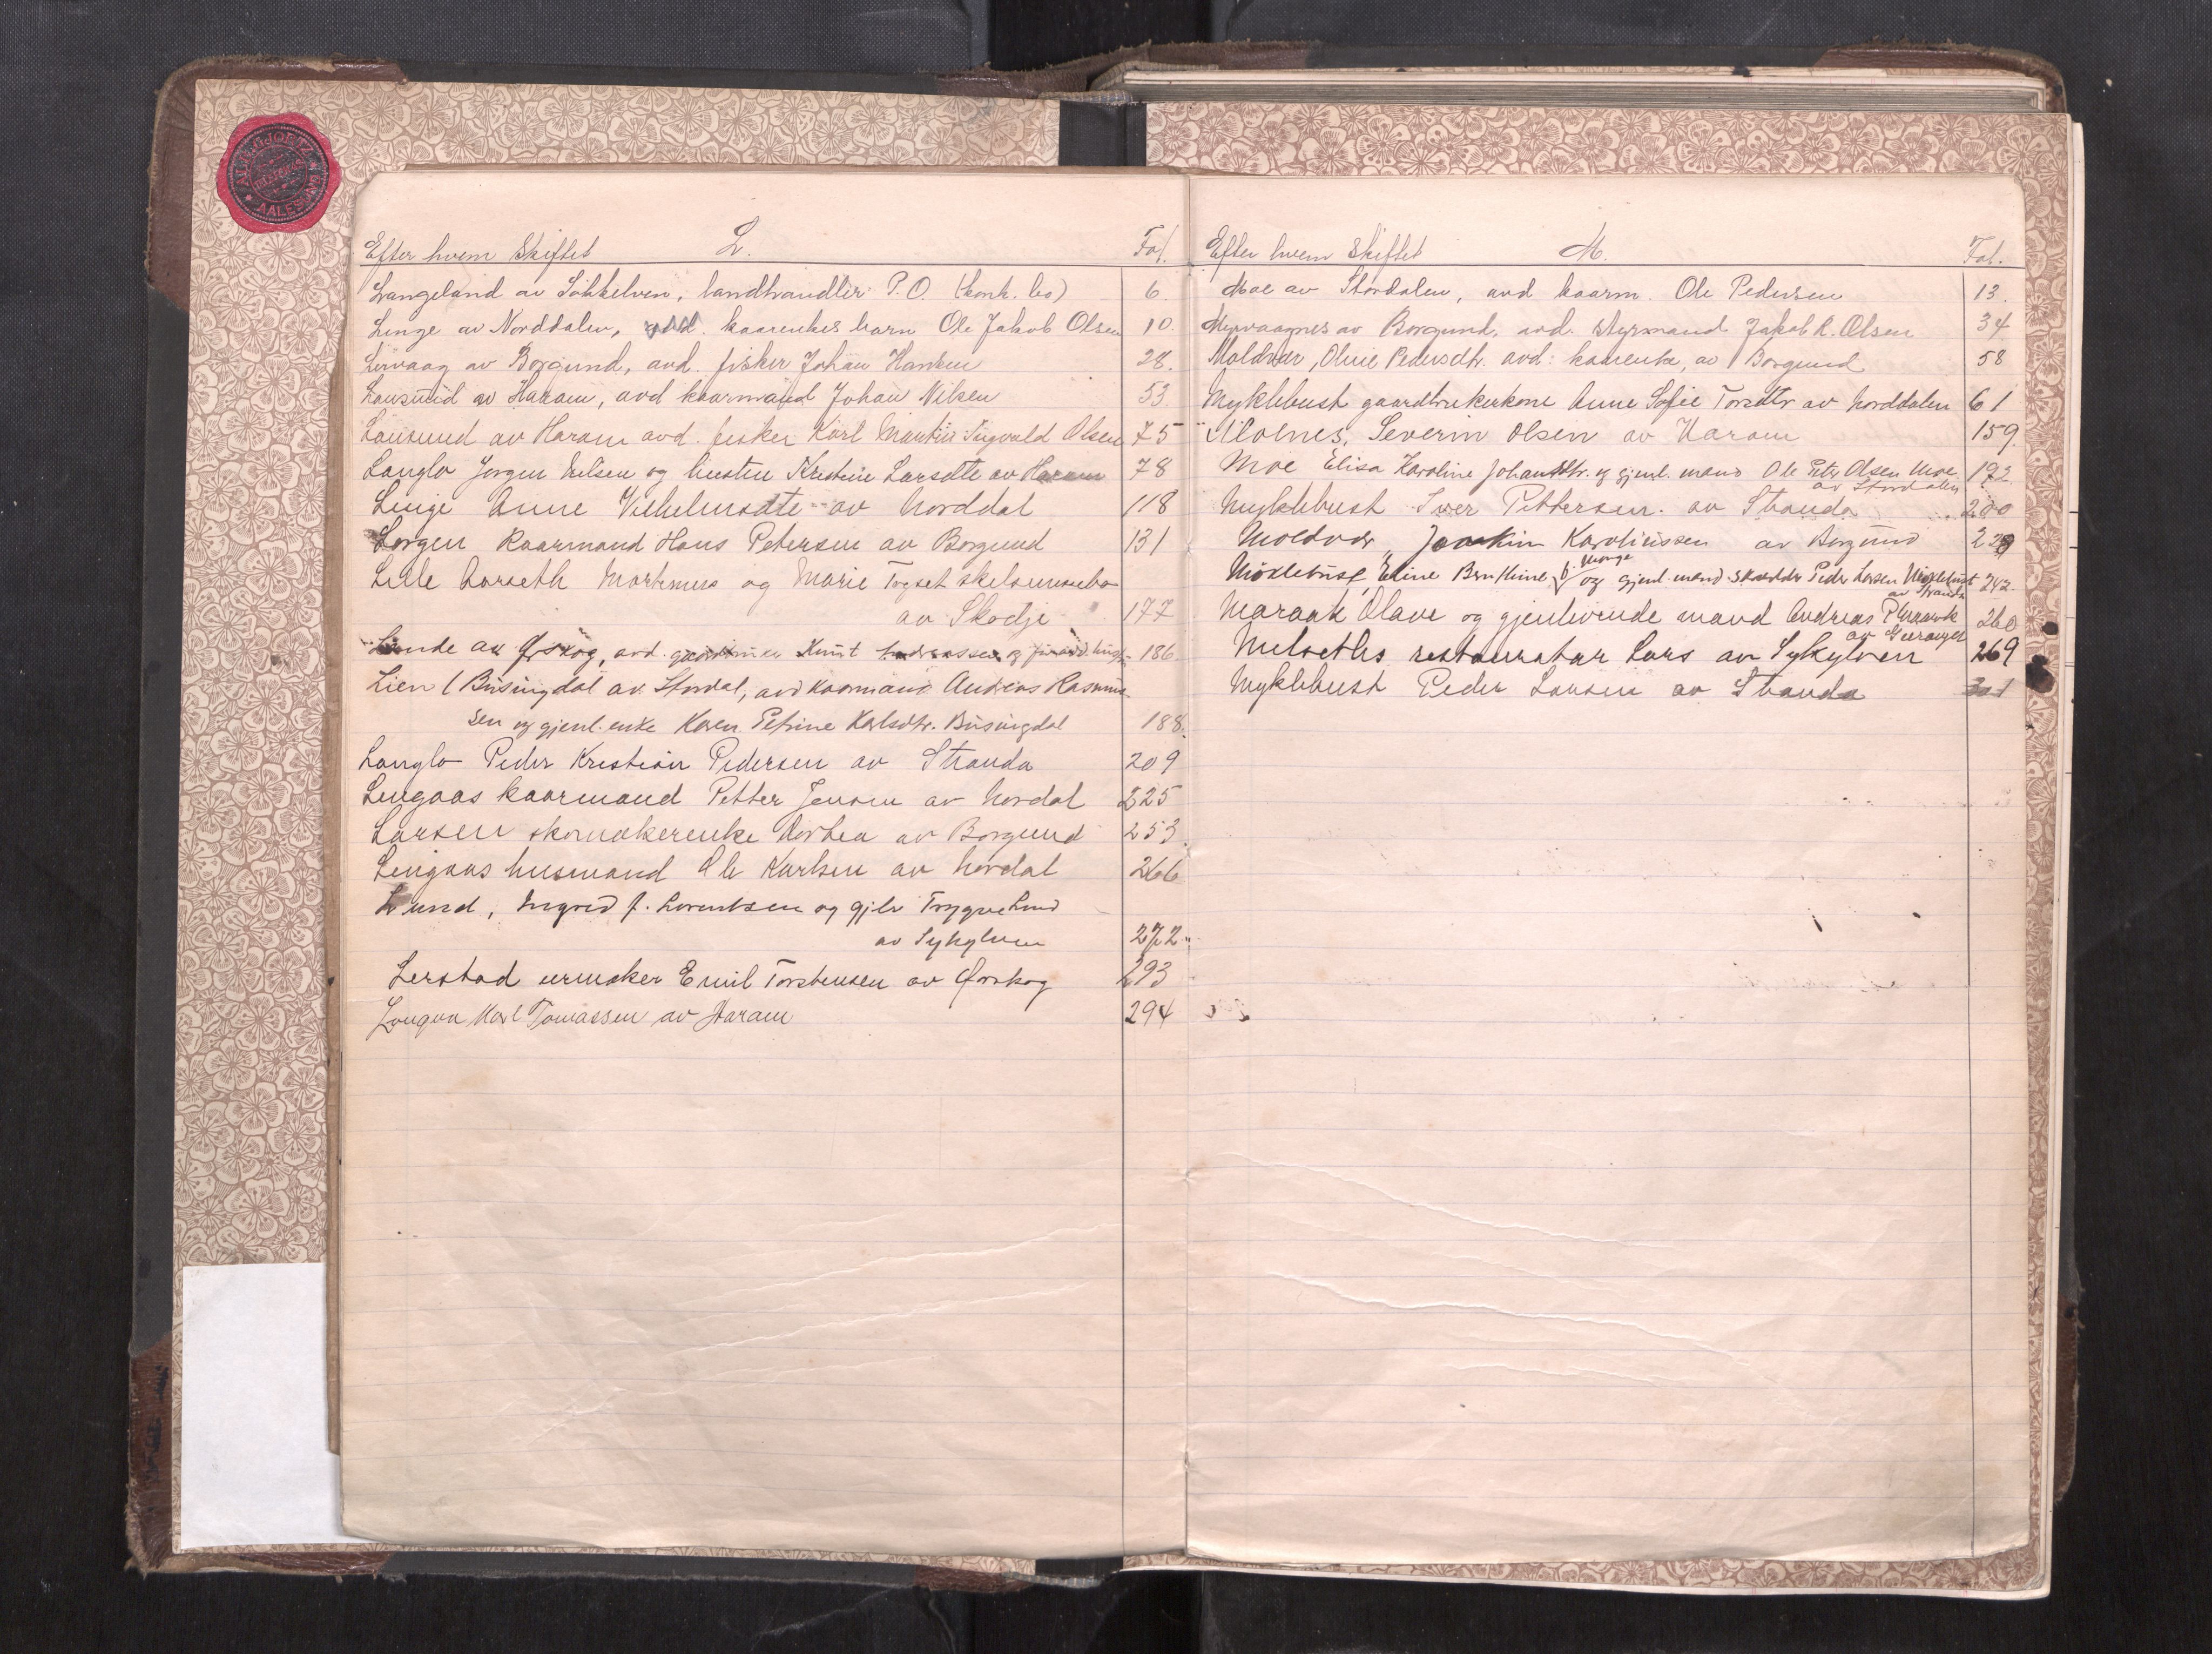 Efter hvem Skiftet L. Fol.
Langeland av Søkkelven, landhandler P.O. (konk. bo) 6
Linge av Norddalen, avd. kaarenkes barn Ole Jakob Olsen 10.
Lervaag av Borgund, avd. fisker Johan Hansen 28.
Lausund av Haram, avd kaarmand Johan Nilsen 53
Lausund av Haram avd. fisker Karl Martin Sigvald Olsen 75
Langlo Jørgen Nilsen og hustru Kristine Larsdtr av Haram 78
Linge Anne Vilhelmsdtr av Norddal 118
Lorgen Kaarmand Hans Petersen av Borgund 131
Lille Aarseth Martinus og Marie Togset skilsmissebo
av Skodje 177
Lande av Ørskog, avd. gaardmer Knut Andreassen og 186
Lien (Busingdal av Stordal, avd kaarmand Andreas Rasmus
sen og gjenl. enke Karen Petrine Karlsdtr. Busingdal 188.
Langlo Peder Kristian Pedersen av Stranda 209
Lingaas kaarmand Petter Jensen av Nordal 225
Larsen skomakerenke Dorhea av Borgund 253
Lingaas husmand Ole Karlsen av Nordal 266
Lund, Ingrid f. Lorentsen og gjlv Trygve Lund
av Sykylven 272
Lerstad urmaker Emil Torstensen av Ørskog 293
Longva Karl Tomassen av Haram 294
Efter hvem Skiftet M. Fol.
Moe av Stordalen, avd kaarm. Ole Pedersen 13.
Myrvaagnes av Borgund, avd. styrmand Jakob K. Olsen 34
Moldvær, Oline Pedersdtr. avd. kaarenke, av Borgund 58
Myklebust gaardbrukerkone Anne Sofie Torsdtr av Norddalen 61
Molnes, Severin Olsen av Haram 159
Moe Elisa Karoline Johansdtr. og gjenl. mand Ole Peter Olsen Moe 192
av Stordalen
Myklebust Iver Pettersen. av Stranda 220
Moldvær, Joakim Karolinssen av Borgund 229
Myklebust, Eline Bernthine f. og gjenl. mand skrædder Peder Larsen Myklebust 242
av Stranda
Maraak Olave og gjenlevende mand Andreas P Maraak 260
av Geiranger
Melseths restauratør Lars av Sykylven 269
Myklebust Peder Larsen av Stranda 301
AALESUND